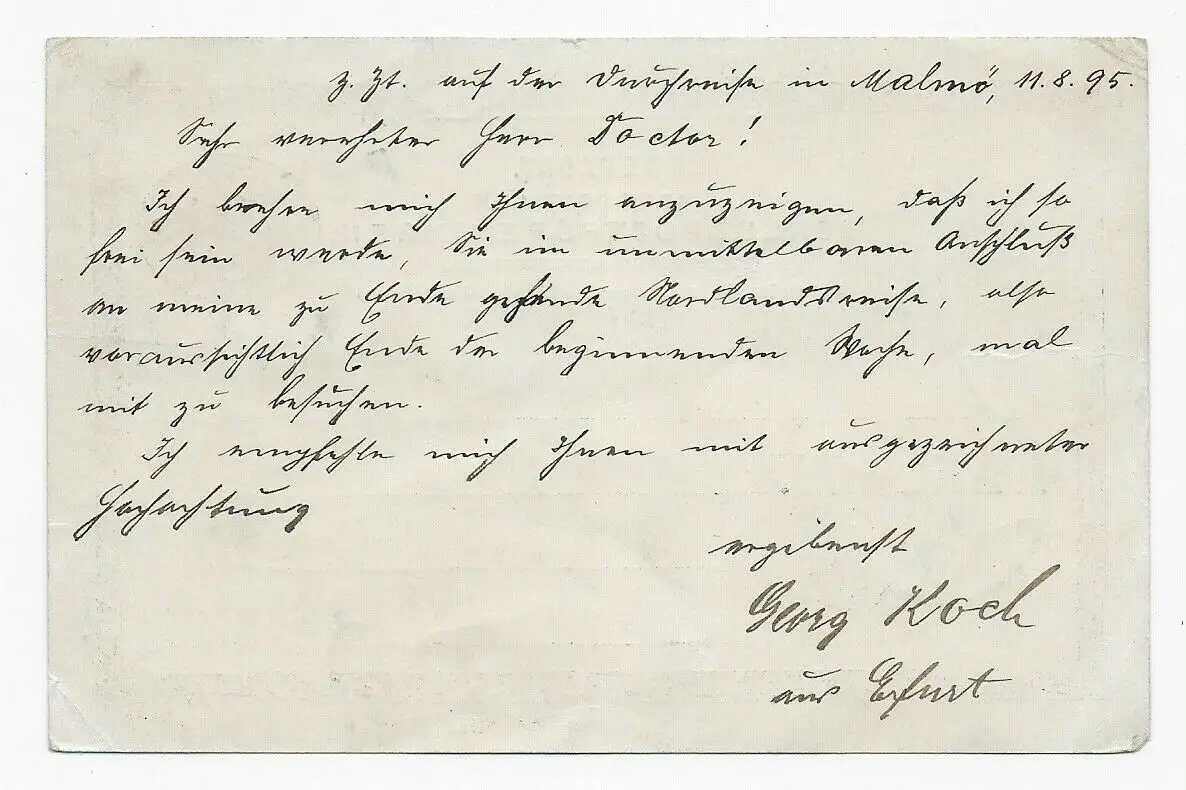 z. Zt. auf der Durchreise in Malmö, 11.8.95.
Sehr verehrter Herr Doctor!
Ich beehre mich Ihnen anzuzeigen, daß ich so
frei sein werde, Sie im unmittelbaren Anschluß
an meine zu Ende gehende Nordlandsreise, also
voraussichtlich Ende der beginnenden Woche, mal
mit zu besuchen.
Ich empfehle mich Ihnen mit ausgezeichneter
Hochachtung
ergebenst
Georg Koch
aus Erfurt